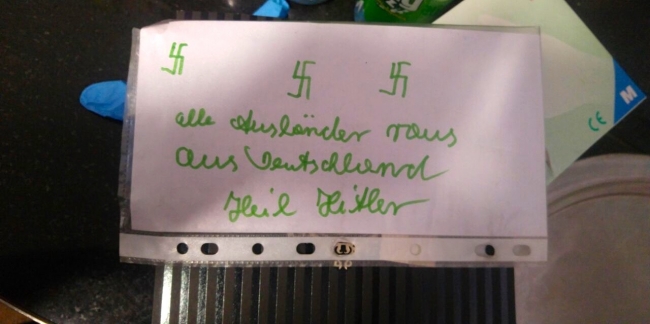 卐 卐 卐
alle Ausländer raus
aus Deutschland
Heil Hitler
CE
M